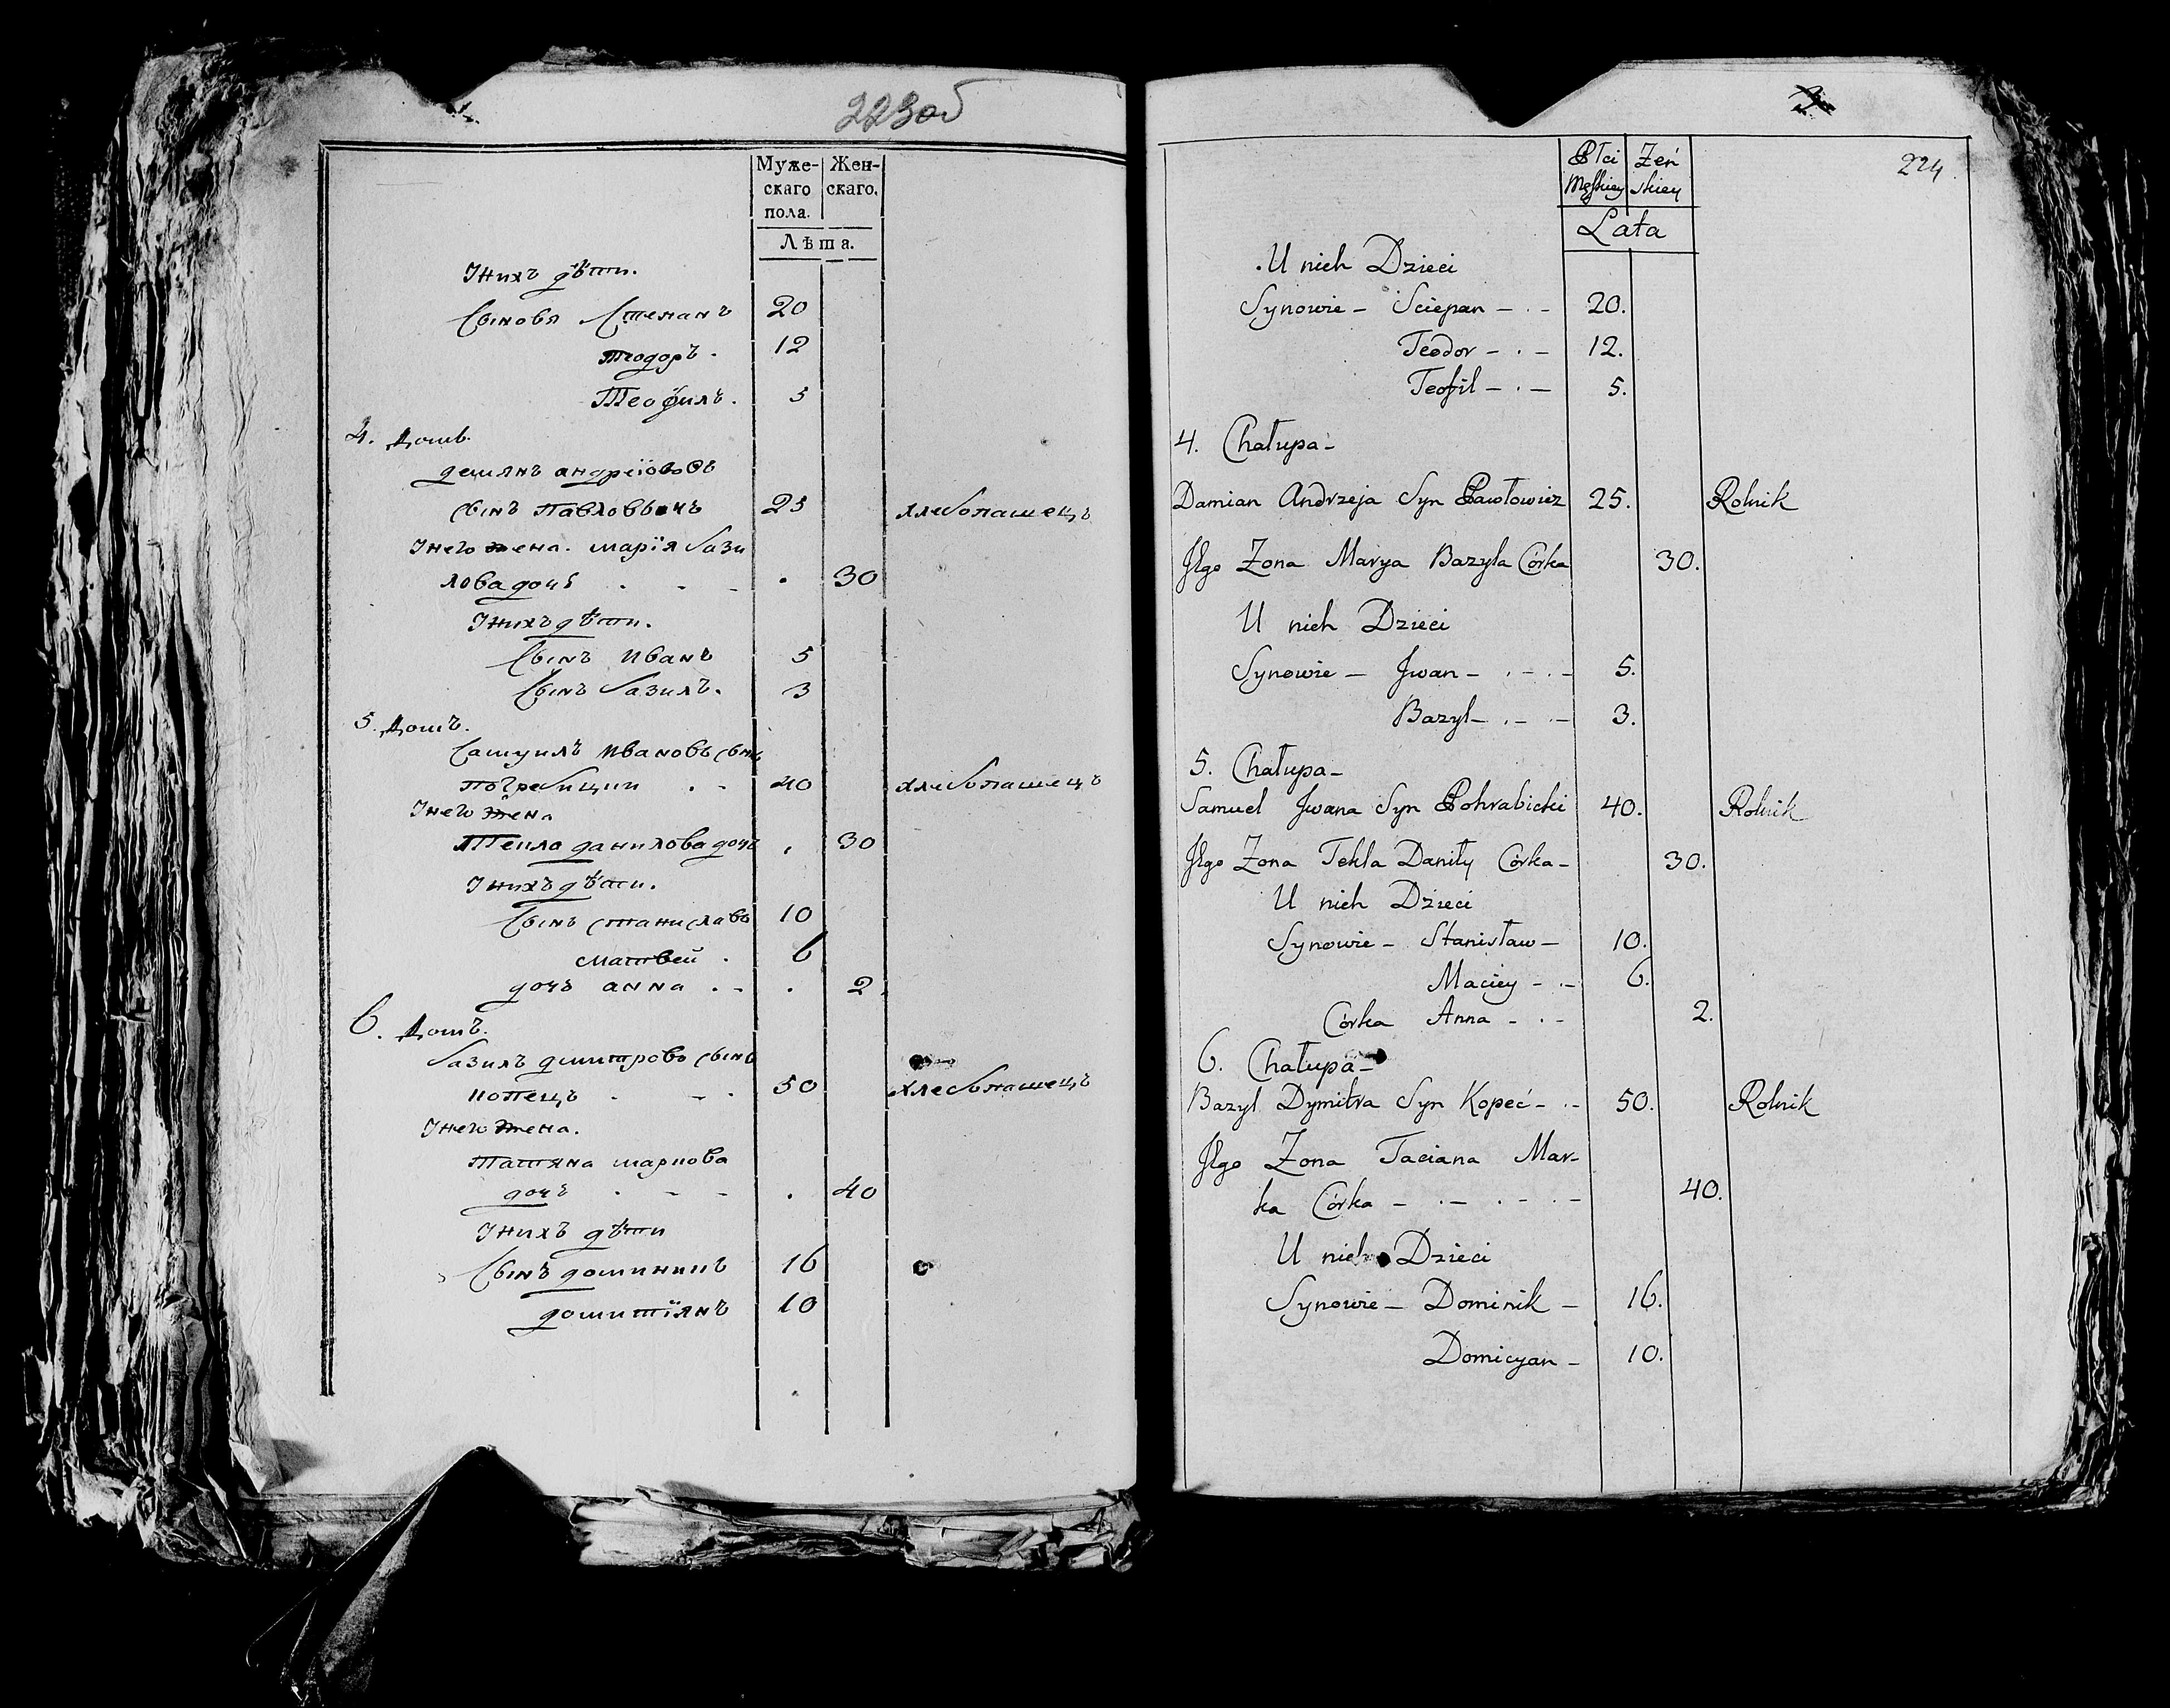 223об
Муже- Жен-
скаго скаго.
пола.
Лѣта.
Унихъ дѣти.
Сыновя Степанъ 20
Теодоръ. 12
Теофилъ. 5
4. Домъ.
Демянъ андреіовъ
сынъ Павловъичъ 25 хлебопашецъ
Унего жена. марія бази
лова дочь . - - - . 30
Унихъ дѣти.
Сынъ Иванъ 5
Сынъ базилъ. 3
5. Домъ.
Самуилъ Ивановъ сынъ
погребицкии . - 40 хлебопашецъ
Унего жена
Текла данилова дочь . 30
Унихъ дѣти.
Сынъ станиславъ 10
матвеи . 6
дочь анна . - . 2
6. Домъ.
базилъ дмитровъ сынъ
копецъ . - . 50 хлебопашецъ
Унего жена.
Татяна маркова
дочь . - - - . 40
Унихъ дѣти
Сынъ доминикъ 16
домитіянъ 10
3
224
Płci Żeń
Męskiey skiey
Lata
U nich Dzieci
Synowie - Sciepan - . - 20.
Teodor - . - 12.
Teofil - . - 5.
4. Chałupa -
Damian Andrzeja Syn Pawłowicz 25. Rolnik
Jego Żona Marya Bazyla Córka 30.
U nich Dzieci
Synowie - Jwan - . - . - 5.
Bazyl - . - . - 3.
5. Chałupa -
Samuel Jwana Syn Pohrabicki 40. Rolnik
Jego Żona Tekla Daniły Córka - 30.
U nich Dzieci
Synowie - Stanisław - 10.
Maciey - . - 6.
Córka Anna - . - 2.
6. Chałupa -
Bazyl Dymitra Syn Kopeć - . - 50. Rolnik
Jego Żona Taciana Mar-
ka Córka - . - . - . - 40.
U nich Dzieci
Synowie - Dominik - 16.
Domicyan - 10.